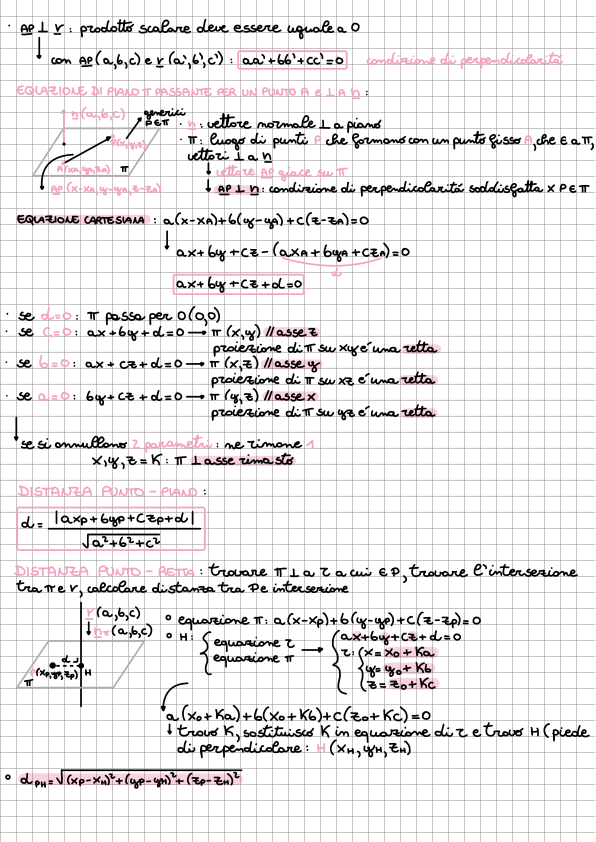 · AP ⊥ r : prodotto scalare deve essere uguale a 0
↓ con AP(a,b,c) e r(a',b',c') : aa'+bb'+cc'=0 condizione di perpendicolarità
EQUAZIONE DI PIANO π PASSANTE PER UN PUNTO A e ⊥ A n :
n(a,b,c)
generici P∈π
P(x,y,z)
A(xA,yA,zA) π
AP(x-xA,y-yA,z-zA)
· n : vettore normale ⊥ a piano
· π : luogo di punti P che formano con un punto fisso A, che ∈ a π,
vettori ⊥ a n
↓ vettore AP giace su π
↓ AP ⊥ n : condizione di perpendicolarità soddisfatta x P∈π
EQUAZIONE CARTESIANA : a(x-xA)+b(y-yA)+c(z-zA)=0
↓
ax+by+cz-(axA+byA+czA)=0
d
ax+by+cz+d=0
· se d=0 : π passa per O(0,0)
· se C=0 : ax+by+d=0 → π (x,y) // asse z
proiezione di π su xy è una retta
· se b=0 : ax+cz+d=0 → π (x,z) // asse y
proiezione di π su xz è una retta
· se a=0 : by+cz+d=0 → π (y,z) // asse x
proiezione di π su yz è una retta
↓ se si annullano 2 parametri : ne rimane 1
x,y,z = K : π ⊥ asse rimasto
DISTANZA PUNTO - PIANO :
d = |axp+byp+czp+d| / √a²+b²+c²
DISTANZA PUNTO - RETTA : trovare π ⊥ a r a cui ∈ P, trovare l'intersezione
tra π e r, calcolare distanza tra P e intersezione
r(a,b,c)
nπ(a,b,c)
d
(xp,yp,zp) H
π
° equazione π : a(x-xp)+b(y-yp)+c(z-zp)=0
° H : { equazione r → { ax+by+cz+d=0
equazione π r: { x=x0+Ka
y=y0+Kb
z=z0+Kc
a(x0+Ka)+b(x0+Kb)+c(z0+Kc)=0
↓ trovo K, sostituisco K in equazione di r e trovo H (piede
di perpendicolare : H (xH,yH,zH)
° dPH=√(xp-xH)²+(yp-yH)²+(zp-zH)²